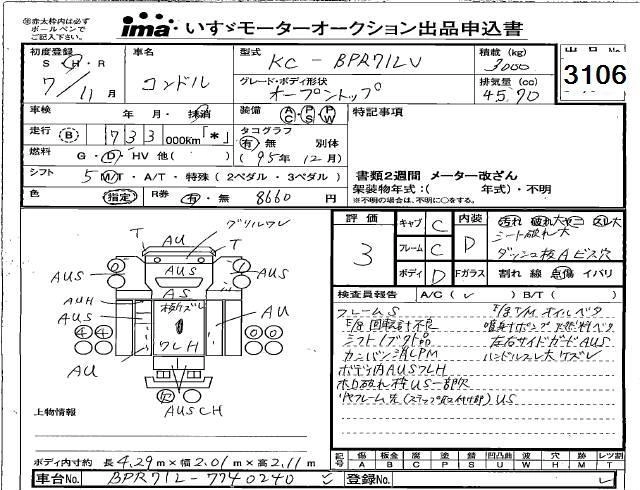 ※赤太枠内は必ず
ボールペンで
ご記入下さい。
ima いすゞモーターオークション出品申込書
初度登録 車名 型式 KC-BPR71LV 積載(kg) 3000 出品No. 3106
S・H・R 7/11月 コンドル グレード・ボディ形状 オープントップ 排気量(cc) 4570
車検 年 月・抹消 装備 AC・PS・PW 特記事項
走行 B 733 000Km「*」 タコグラフ 有・無 別体
燃料 G・D・HV 他( ) (95年12月) 書類2週間 メーター改ざん
シフト 5 M/T・A/T・特殊(2ペダル・3ペダル) 架装物年式:( 年式)・不明
色 指定 R券 有・無 8660円 ※不明の場合は、不明に○をする。
評価 3 キャブ C 内装 D 汚れ 破れ大
シート破れ大
フレーム C
ダッシュ板Aビス穴
ボディ D Fガラス 割れ 線 点傷 イバリ
検査員報告 A/C( ✓ ) B/T( )
フレームS E/g T/M オイルベタ
E/g 回転計不良 噴射ポンプ燃料ベタ
シフトノブ欠品 左右サイドガードAUS
カンバン消しPM ハンドルスレ大ケズレ
ボデー内AUSフLH
ホロ破れ枠US一部R
Rフレーム先(ステップ取付部)US
T AU T グリルワレ
AUS AUS AUS
AS
AUH
AUS
板ズレ
AU
4 4
ワレH
AU
AUSCH
上物情報
記号 傷 A 板金 B 腐 C 塗 P 錆 S 凹凸曲 U 波 W 穴 H 跡 M レツ割 T
ボディ内寸約 長4.29m×幅2.01m×高2.11m
車台No. BPR71L-7740240 登録No.